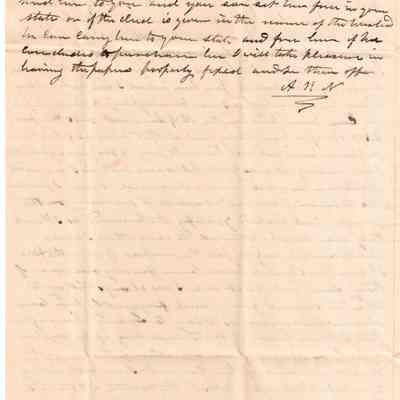 send her to you and you can set her free in your
state or if the deed is given in the name of the husband
he can carry her to your state and free her if he
concludes to purchase her I will take pleasure in
having the papers properly fixed and send them off
A R N